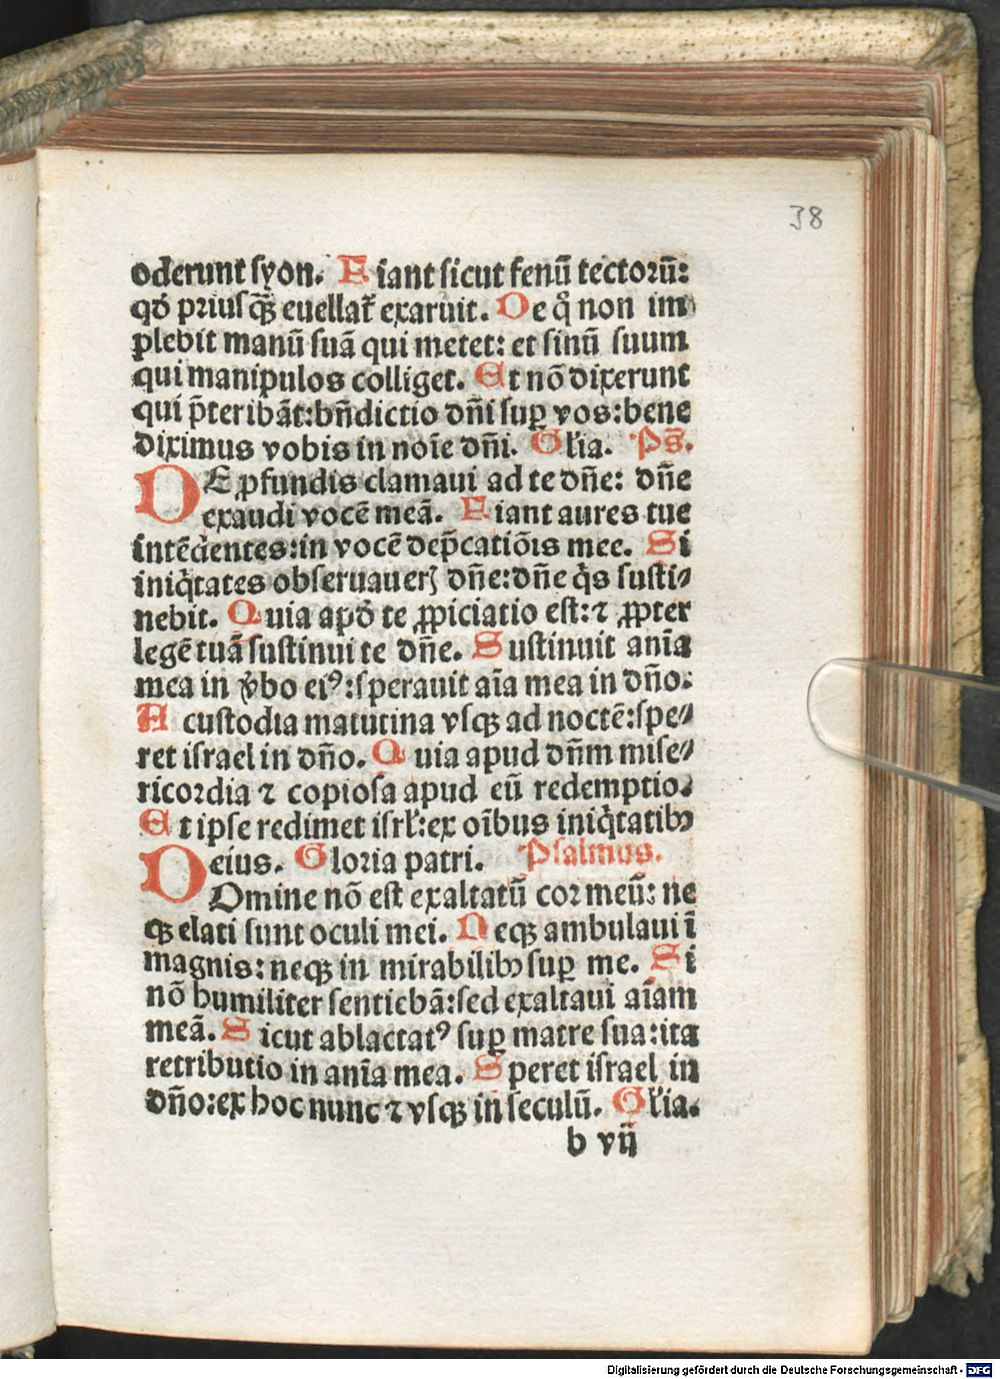 38
oderunt syon. Fiant sicut fenū tectorū:
qd̄ priusq̄ȝ euellat᷑ exaruit. De q̊ non im
plebit manū suā qui metet: et sinū suum
qui manipulos colliget. Et nō dixerunt
qui p̄teribāt: bn̄dictio dn̄i suꝑ vos: bene
diximus vobis in noīe dn̄i. Gl̓ia. Ps̄.
DE ꝓfundis clamaui ad te dn̄e: dn̄e
exaudi vocē meā. Fiant aures tue
intēdentes: in vocē dep̄catiōis mee. Si
iniq̇tates obseruauerȝ dn̄e: dn̄e q̇s susti⸗
nebit. Quia apd̄ te ꝓpiciatio est: ⁊ ꝓpter
legē tuā sustinui te dn̄e. Sustinuit anīa
mea in v̆bo eiꝰ: sperauit aīa mea in dn̄o.
A custodia matutina vsqȝ ad noctē: spe⸗
ret israel in dn̄o. Quia apud dn̄m mise⸗
ricordia ⁊ copiosa apud eū redemptio.
Et ipse redimet isrl̓: ex oībus iniq̇tatibꝰ
eius. Gloria patri. Psalmus.
DOmine nō est exaltatū cor meū: ne
qȝ elati sunt oculi mei. Neqȝ ambulaui ī
magnis: neqȝ in mirabilibꝰ suꝑ me. Si
nō humiliter sentiebā: sed exaltaui aīam
meā. Sicut ablactatꝰ suꝑ matre sua: ita
retributio in anīa mea. Speret israel in
dn̄o: ex hoc nunc ⁊ vsqȝ in seculū. Gl̓ia.
b vij
Digitalisierung gefördert durch die Deutsche Forschungsgemeinschaft - DFG